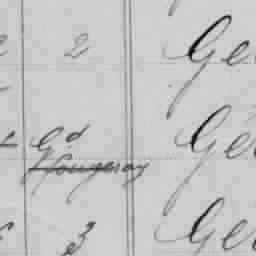 2 Ge
Gd Gé
Fougeray
3 Ge